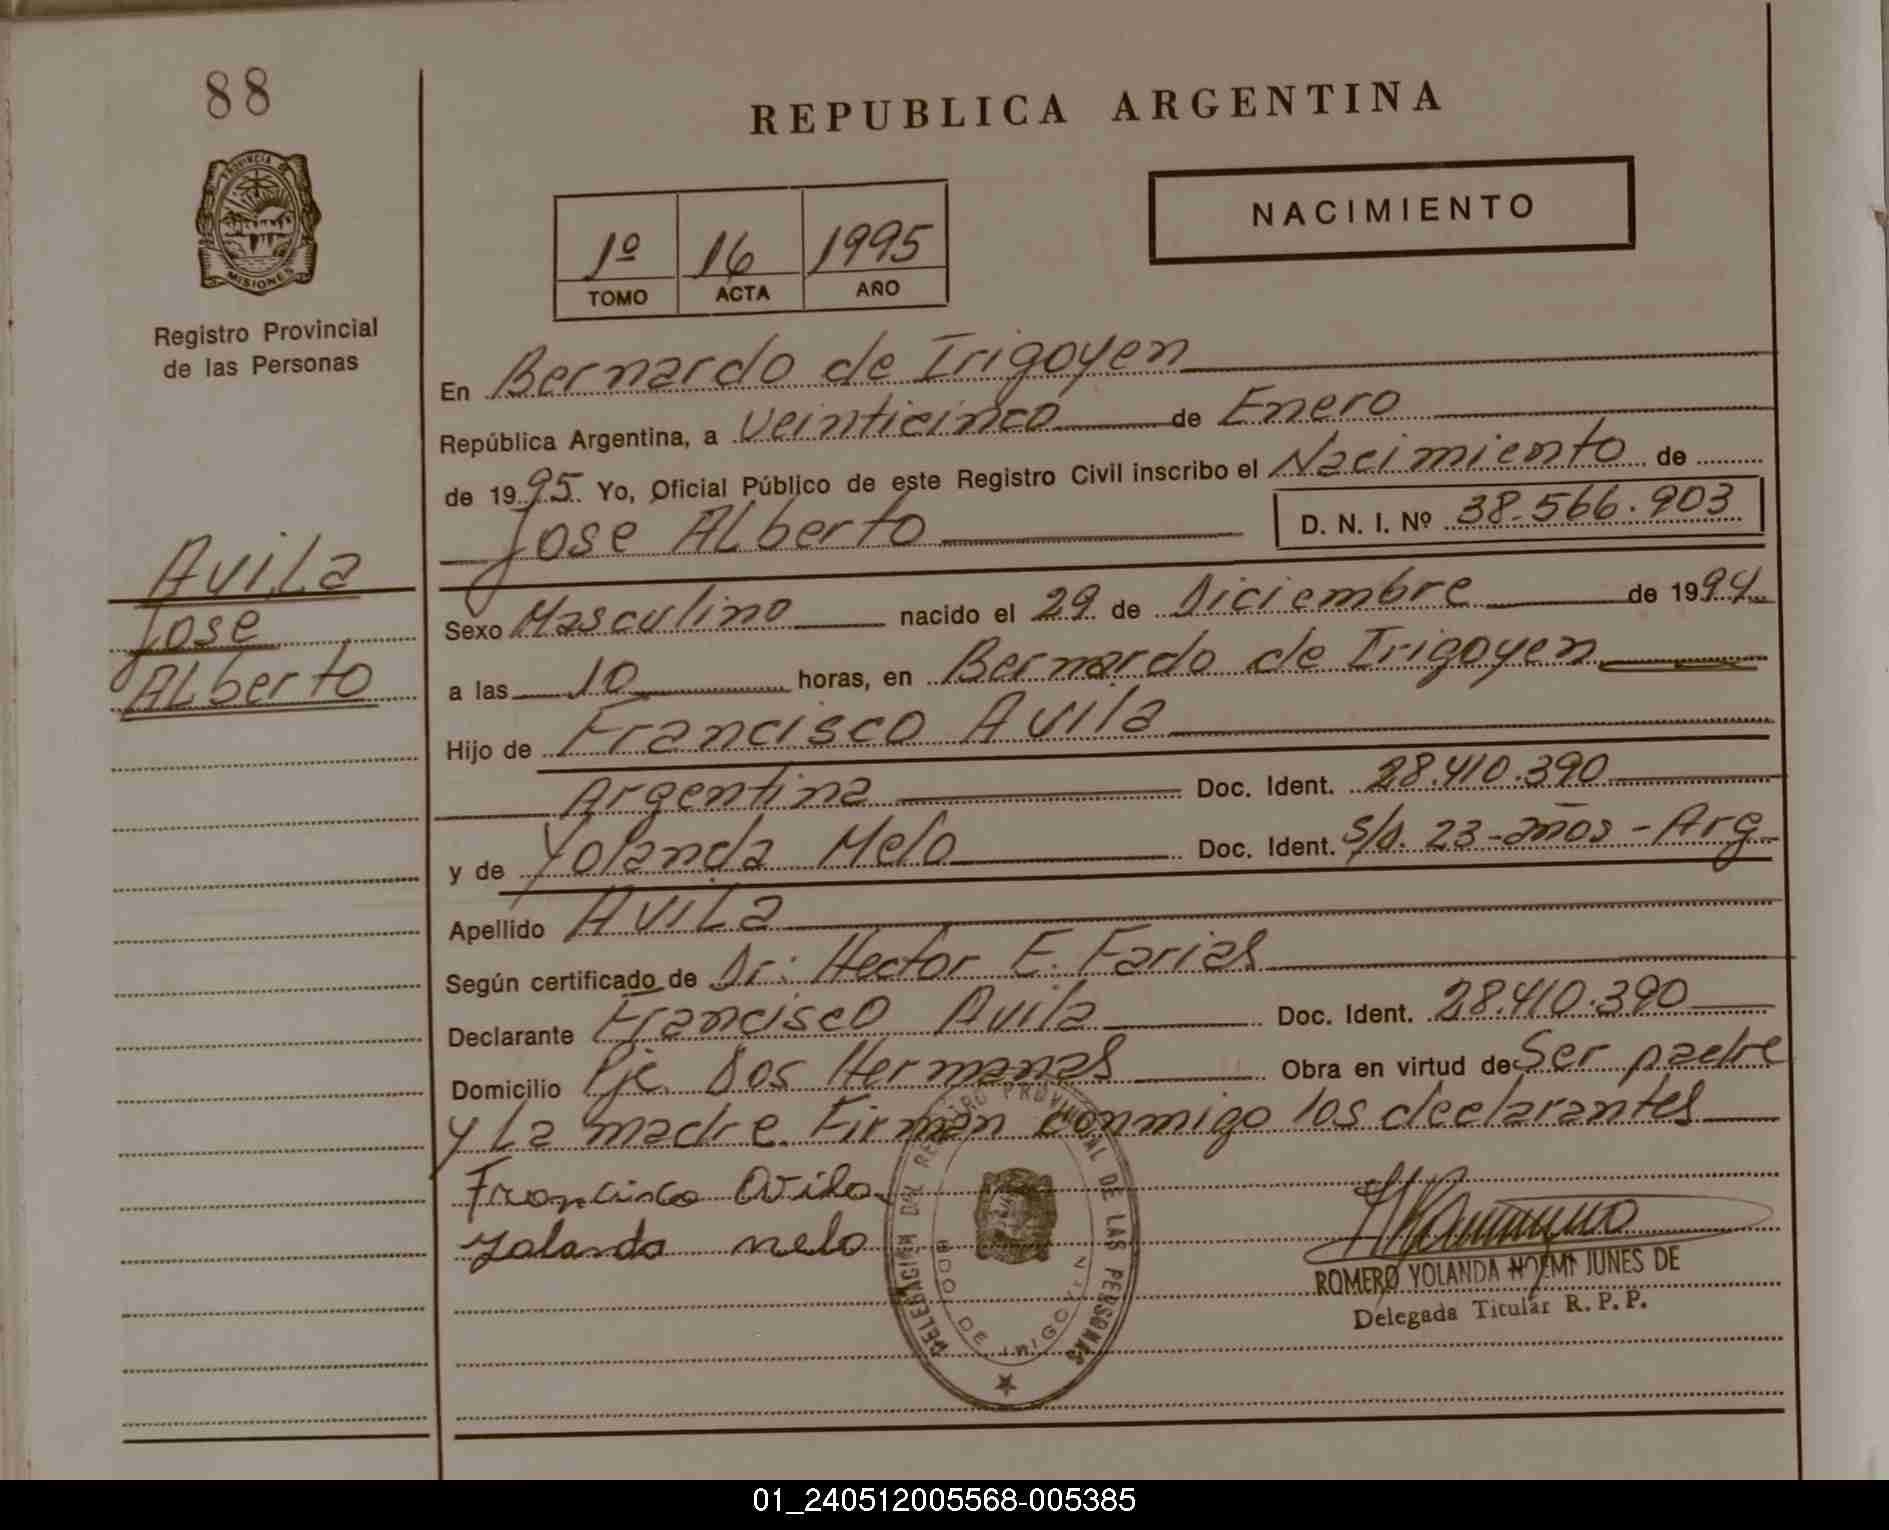 88
PROVINCIA DE
MISIONES
Registro Provincial
de las Personas
Avila
Jose
Alberto
REPUBLICA ARGENTINA
NACIMIENTO
1º 16 1995
TOMO ACTA AÑO
En Bernardo de Irigoyen
República Argentina, a veinticinco de Enero
de 1995. Yo, Oficial Público de este Registro Civil inscribo el Nacimiento de
Jose Alberto D. N. I. Nº 38.566.903
Sexo Masculino nacido el 29 de Diciembre de 1994
a las 10 horas, en Bernardo de Irigoyen
Hijo de Francisco Avila
Argentina Doc. Ident. 28.410.390
y de Yolanda Melo Doc. Ident. S/D. 23-años-Arg
Apellido Avila
Según certificado de Dr: Hector E. Farias
Declarante Francisco Avila Doc. Ident. 28.410.390
Domicilio Pje. Dos Hermanas Obra en virtud de Ser padre
y La madre. Firman conmigo los declarantes
Francisco Avila
Yolanda melo
DELEGACION DEL REGISTRO PROVINCIAL DE LAS PERSONAS
BDO DE IRIGOYEN
ROMERO YOLANDA NOEMI JUNES DE
Delegada Titular R. P. P.
01_240512005568-005385